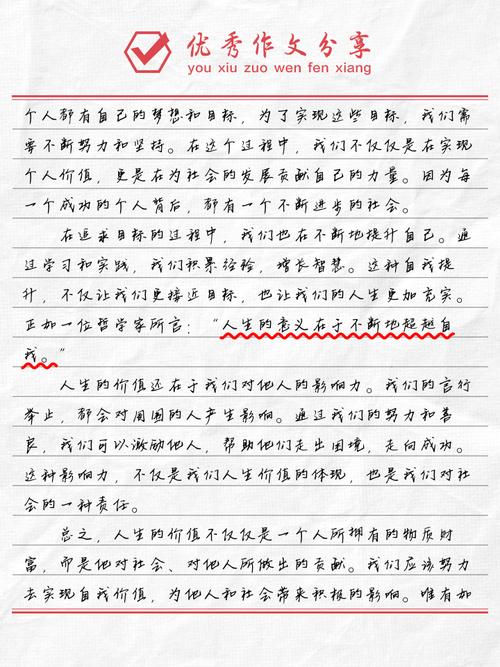 优秀作文分享
you xiu zuo wen fen xiang
个人都有自己的梦想和目标，为了实现这些目标，我们需
要不断努力和坚持。在这个过程中，我们不仅仅是在实现
个人价值，更是在为社会的发展贡献自己的力量。因为每
一个成功的个人背后，都有一个不断进步的社会。
在追求目标的过程中，我们也在不断地提升自己。通
过学习和实践，我们积累经验，增长智慧。这种自我提
升，不仅让我们更接近目标，也让我们的人生更加充实。
正如一位哲学家所言：“人生的意义在于不断地超越自
我。”
人生的价值还在于我们对他人的影响力。我们的言行
举止，都会对周围的人产生影响。通过我们的努力和善
良，我们可以激励他人，帮助他们走出困境，走向成功。
这种影响力，不仅是我们人生价值的体现，也是我们对社
会的一种责任。
总之，人生的价值不仅仅是一个人所拥有的物质财
富，而是他对社会、对他人所做出的贡献。我们应该努力
去实现自我价值，为他人和社会带来积极的影响。唯有如